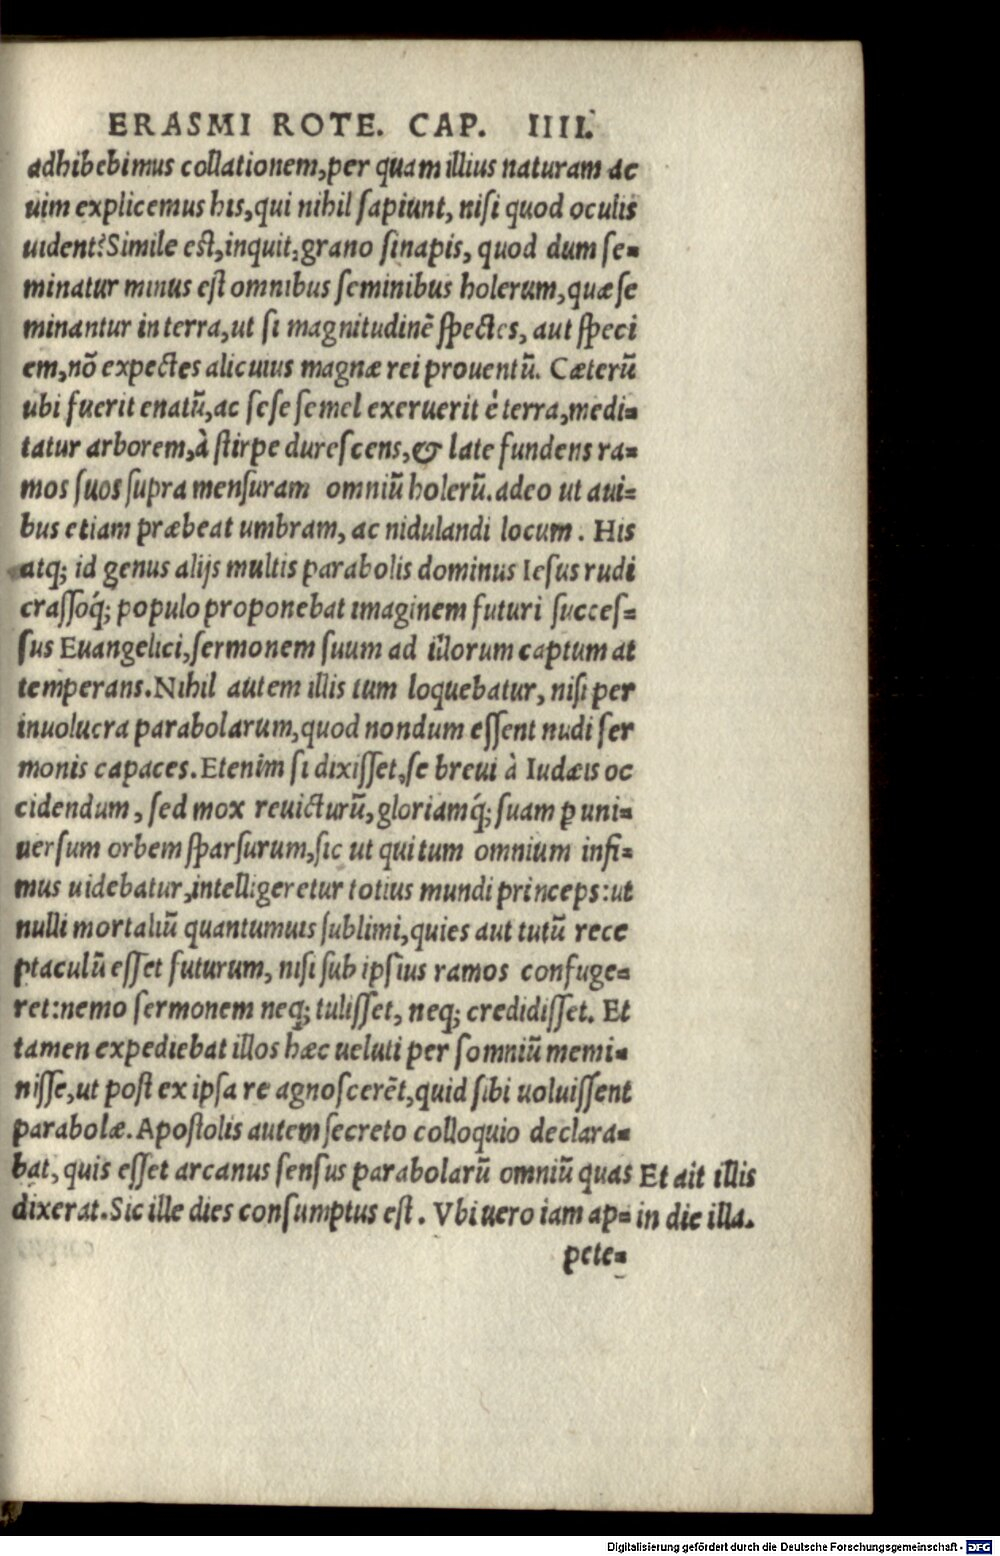 ERASMI ROTE. CAP. IIII.
adhibebimus collationem,per quam illius naturam ac
uim explicemus his,qui nihil ſapiunt, niſi quod oculis
uident?Simile eſt,inquit,grano ſinapis, quod dum ſe-
minatur minus eſt omnibus ſeminibus holerum,quæ ſe
minantur in terra,ut ſi magnitudinẽ ſpectes, aut ſpeci
em,nõ expectes alicuius magnæ rei prouentũ. Cæterũ
ubi fuerit enatũ,ac ſeſe ſemel exeruerit è terra,medi-
tatur arborem,à ſtirpe dureſcens,& late fundens ra-
mos ſuos ſupra menſuram omniũ holerũ.adeo ut aui-
bus etiam præbeat umbram, ac nidulandi locum. His
atq; id genus alijs multis parabolis dominus Ieſus rudi
craſſoq́; populo proponebat imaginem futuri ſucceſ-
ſus Euangelici,ſermonem ſuum ad illorum captum at
temperans.Nihil autem illis tum loquebatur, niſi per
inuolucra parabolarum,quod nondum eſſent nudi ſer
monis capaces.Etenim ſi dixiſſet,ſe breui à Iudæis oc
cidendum, ſed mox reuicturũ,gloriamq́; ſuam ꝑ uni-
uerſum orbem ſparſurum,ſic ut qui tum omnium infi-
mus uidebatur,intelligeretur totius mundi princeps:ut
nulli mortaliũ quantumuis ſublimi,quies aut tutũ rece
ptaculũ eſſet futurum, niſi ſub ipſius ramos confuge-
ret:nemo ſermonem neq; tuliſſet, neq; credidiſſet. Et
tamen expediebat illos hæc ueluti per ſomniũ memi-
niſſe,ut poſt ex ipſa re agnoſcerẽt,quid ſibi uoluiſſent
parabolæ.Apoſtolis autem ſecreto colloquio declara-
bat, quis eſſet arcanus ſenſus parabolarũ omniũ quas Et ait illis
dixerat.Sic ille dies conſumptus eſt. Vbi uero iam ap- in die illa.
pete-
Digitalisierung gefördert durch die Deutsche Forschungsgemeinschaft - DFG